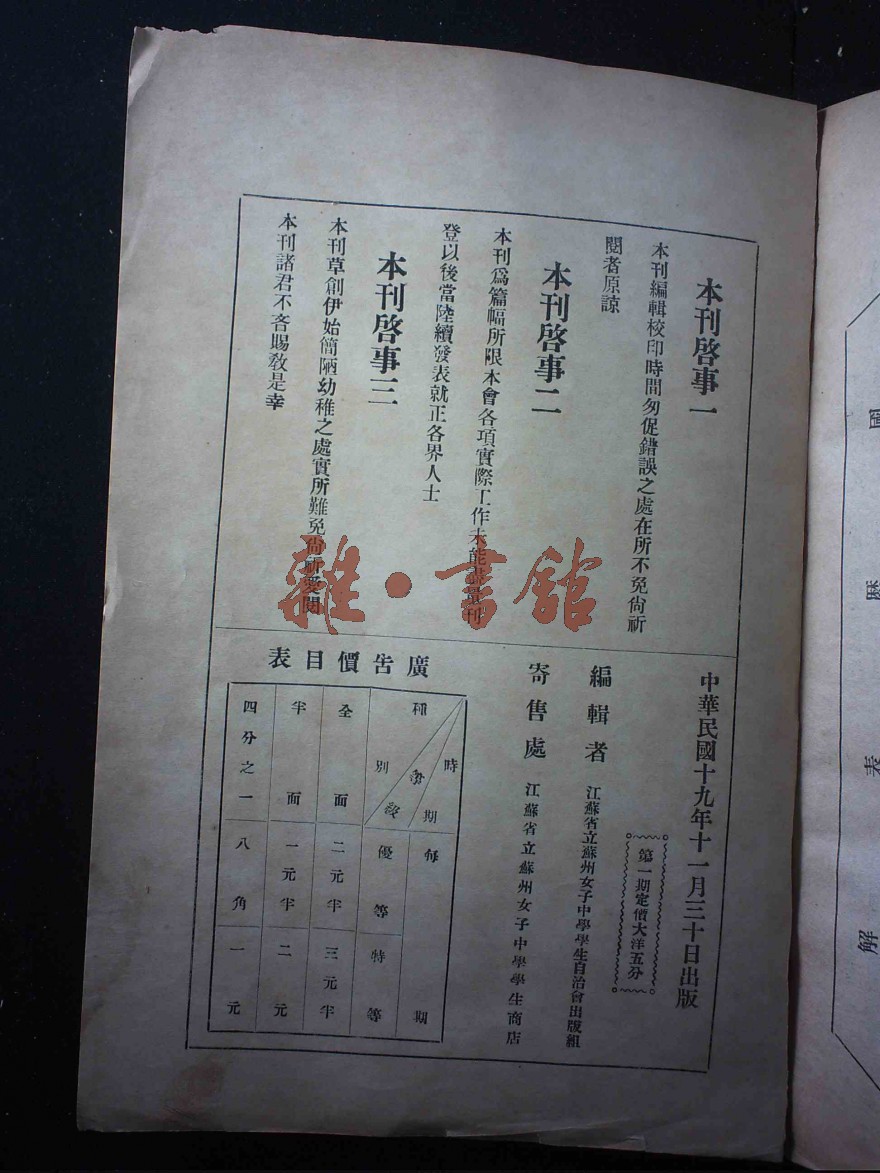 本刊啓事一
本刊編輯校印時間匆促錯誤之處在所不免尙祈
閱者原諒
本刊啓事二
本刊爲篇幅所限本會各項實際工作未能盡量刊
登以後當陸續發表就正各界人士
本刊啓事三
本刊草創伊始簡陋幼稚之處實所難免尙祈愛閱
本刊諸君不吝賜敎是幸
中華民國十九年十一月三十日出版
第一期定價大洋五分
編輯者 江蘇省立蘇州女子中學學生自治會出版組
寄售處 江蘇省立蘇州女子中學學生商店
廣告價目表
時期 等級 種別
每期
優等 特等
全面 二元半 三元半
半面 一元半 二元
四分之一 八角 一元
雜·書館
圖
歷
表
解